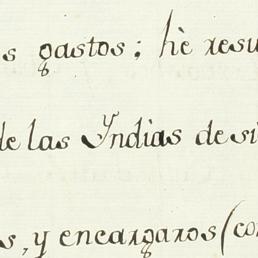 s gastos; hè resu
de las Yndias de si
s, y encargaros (co